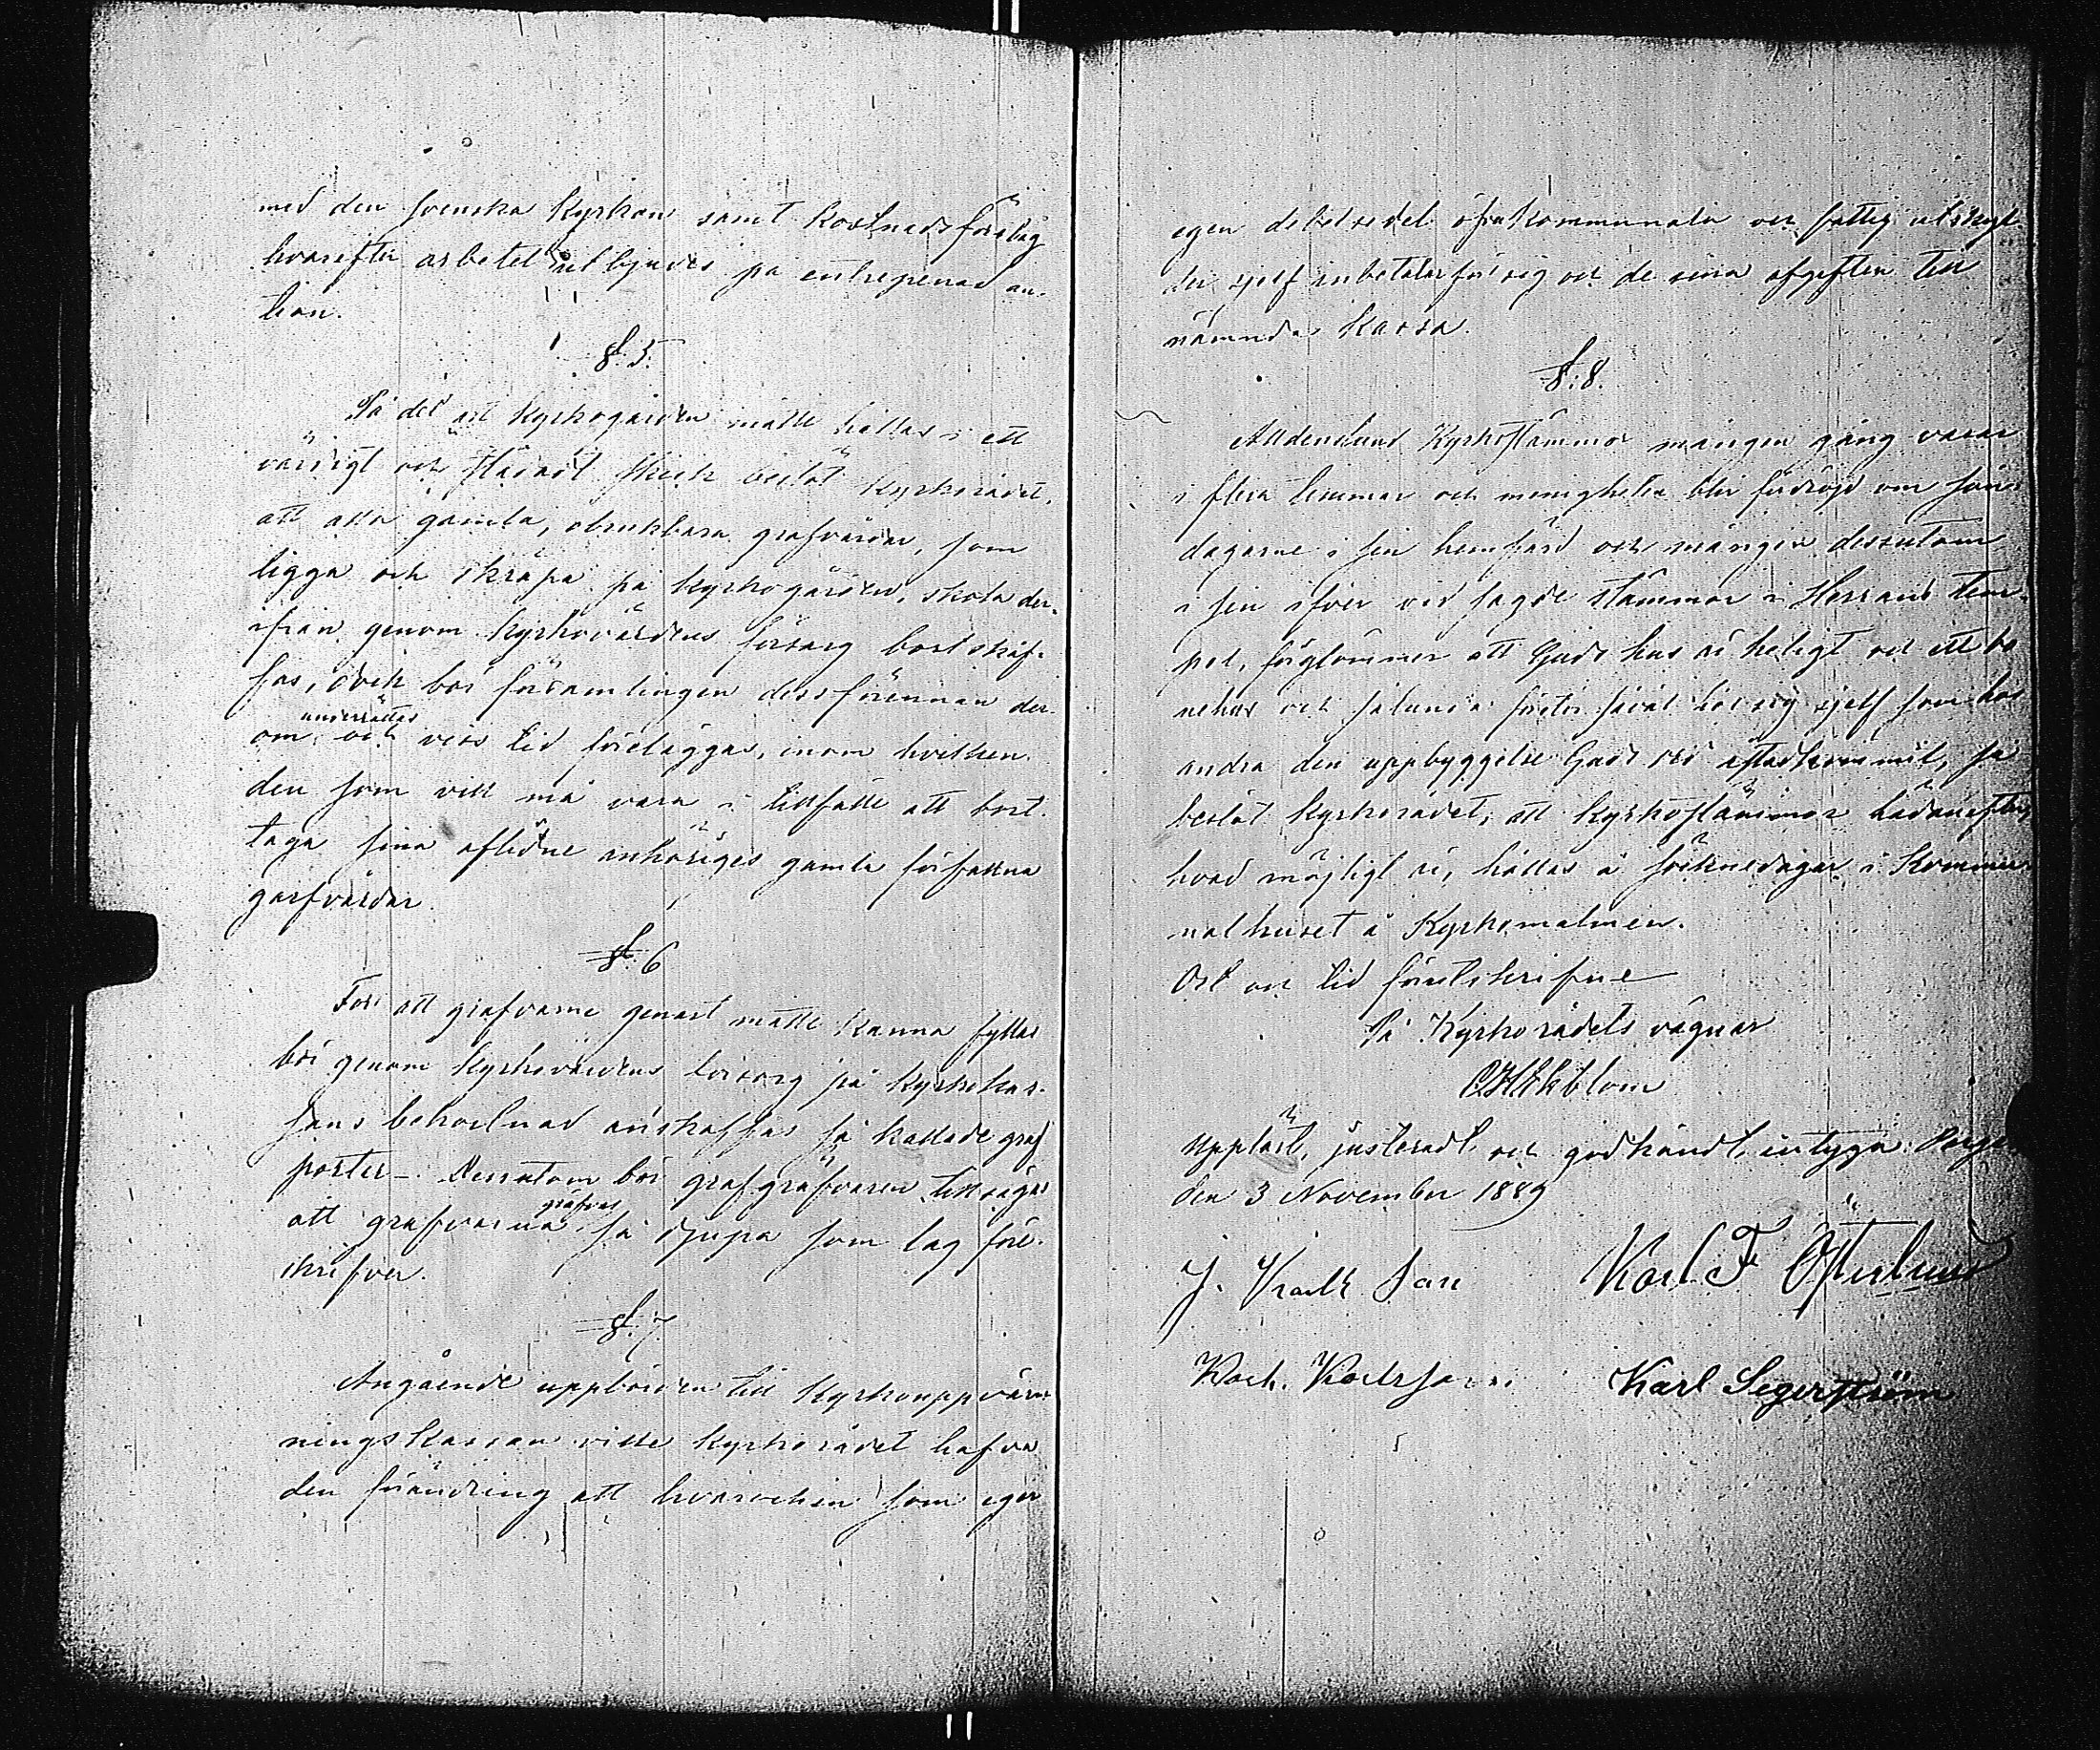 med den svenska kyrkan samt kostnadsförslag
hvarefter arbetet utbjudes på entreprenad auk-
tion.
§. 5.
På det att kyrkogården måtte hållas i ett
värdigt och städadt skick beslöt kyrkorådet,
att alla gamla, obrukbara grafvårdar, som
ligga och skräpa på kyrkogården, skola der-
ifrån genom kyrkovärdens försorg bortskaf-
fas, dock bör församlingen dessförinnan der-
om underrättas och viss tid föreläggas, inom hvilken
den som vill må vara i tillfälle att bort-
taga sina aflidne anhöriges gamla förfallna
garfvårdar.
§. 6
För att grafvarne genast måtte kunna fyllas
bör genom kyrkovärdens försorg på kyrkokas-
sans bekostnad anskaffas så kallade graf
portar. Dessutom bör grafgräfvaren tillsägas
att grafvarna gräfvas så djupa som lag före-
skrifver.
§. 7
Angående uppbörden till kyrkouppvärm-
ningskassan ville kyrkorådet hafva
den förändring att hvar och en som eger
egen debetsedel å kommunala och fattig utskyl-
der sjelf inbetalar för sig och de sina afgiften till
nämnda kassa.
§. 8.
Alldenstund Kyrkostämmor mången gång varar
i flera timmar och menigheten blir fördröjd om sön-
dagarne i sin hemfärd och mången dessutom
i sin ifver vid sagde stämmor i Herrans tem-
pel, förglömmer att Guds hus är heligt och ett bö
nehus och sålunda förstör såväl hos sig sjelf som hos
andra den uppbyggelse Guds ord åstadkommit, så
beslöt kyrkorådet, att kyrkostämmor hädanefter,
hvad möjligt är, hållas å söknedagar i Kommu-
nalhuset å Kyrkomalmen.
Ort och tid förutskrifne
På Kyrkorådets vägnar
Ekblom
Uppläst, justeradt och godkändt, intyga
den 3 November 1889
J. Son Karl F Österlund
Karlsson Karl Segerström